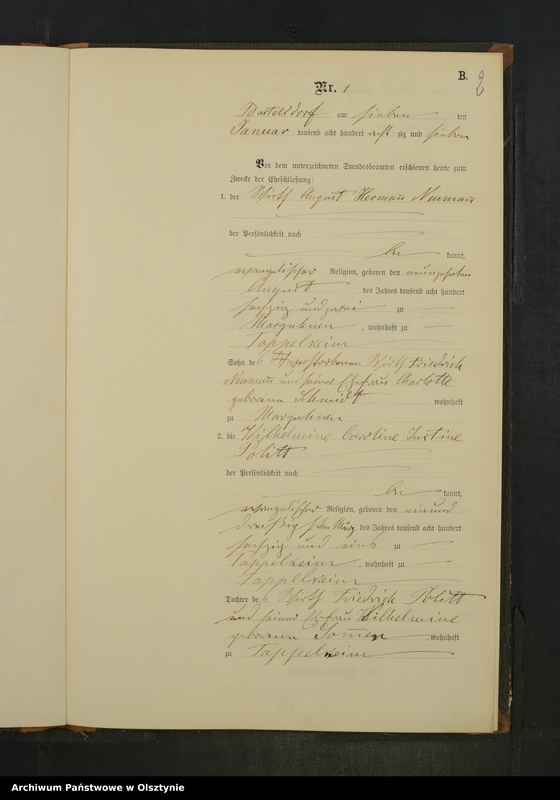 B.
2
Nr. 1
Bartelsdorf am sieben ten
Januar tausend acht hundert acht zig und sieben
Vor dem unterzeichneten Standesbeamten erschienen heute zum
Zwecke der Eheschließung:
1. der Wirth August Hermann Neumann
der Persönlichkeit nach
be kannt,
evangelischer Religion, geboren den neunzehnten
August des Jahres tausend acht hundert
sechzig und zwei zu
Marguhnen, wohnhaft zu
Tappelkeim
Sohn des verstorbenen Wirth Friedrich
Neumann und seiner Ehefrau Charlotte
geborene Schmidt wohnhaft
zu Marguhnen
2. die Wilhelmine Caroline Justine
Politt
der Persönlichkeit nach
be kannt,
evangelischer Religion, geboren den einund
dreißigsten März des Jahres tausend acht hundert
sechzig und eins zu
Tappelkeim, wohnhaft zu
Tappelkeim
Tochter des Wirth Friedrich Politt
und seiner Ehefrau Wilhelmine
geborene wohnhaft
zu Tappelkeim
Archiwum Państwowe w Olsztynie